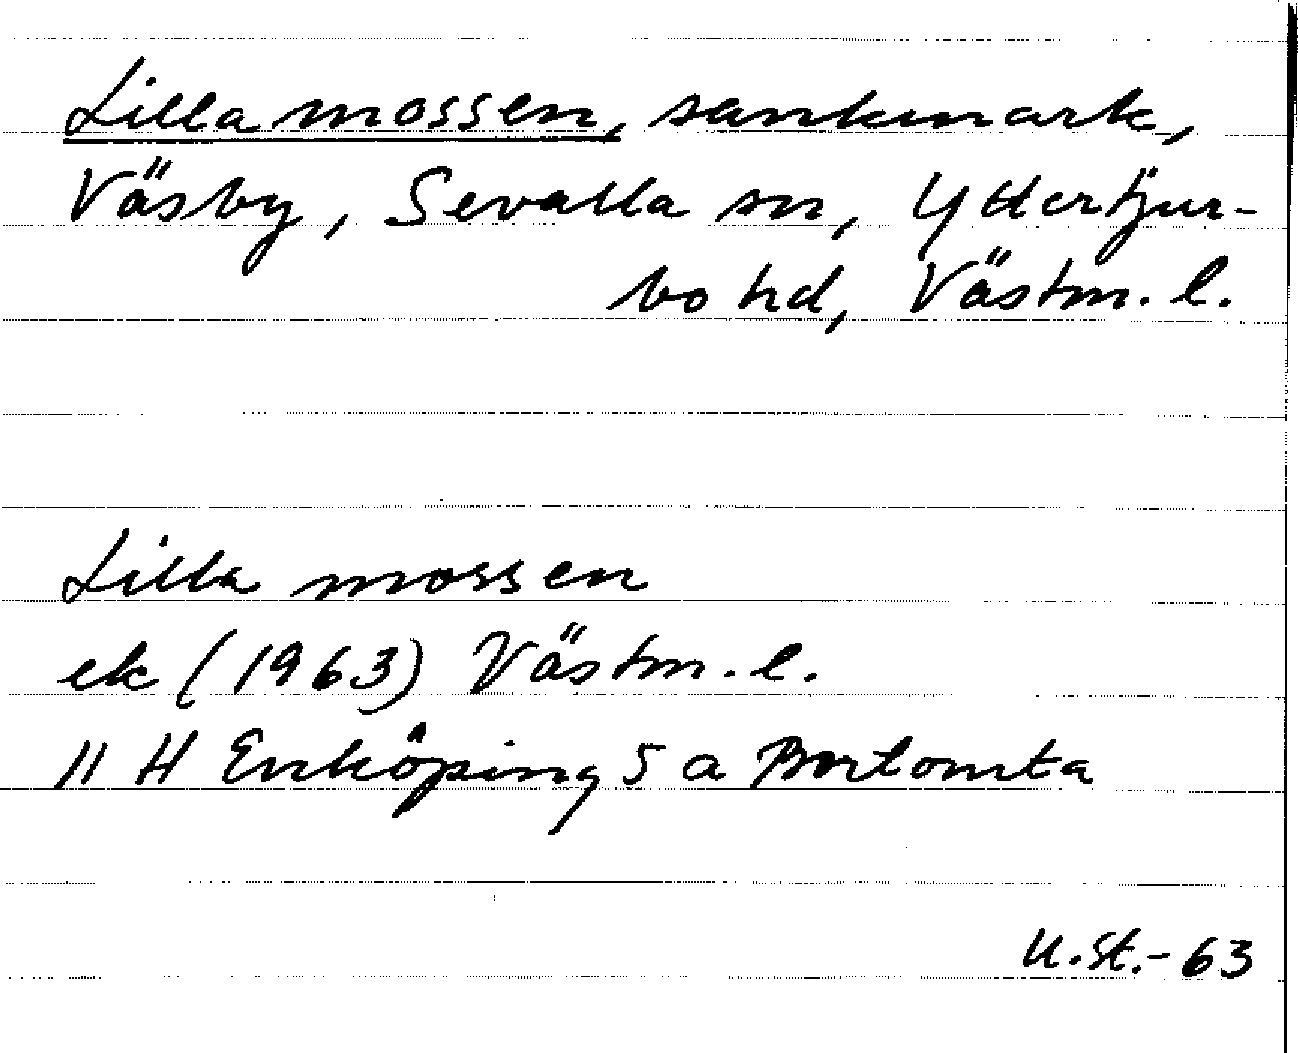 Lilla mossen, sankmark,
Väsby, Sevalla sn, Yttertjur-
bo hd, Västm. l.
Lilla mossen
ek (1963) Västm. l.
11 H Enköping 5 a Bortomta
U.St.-63